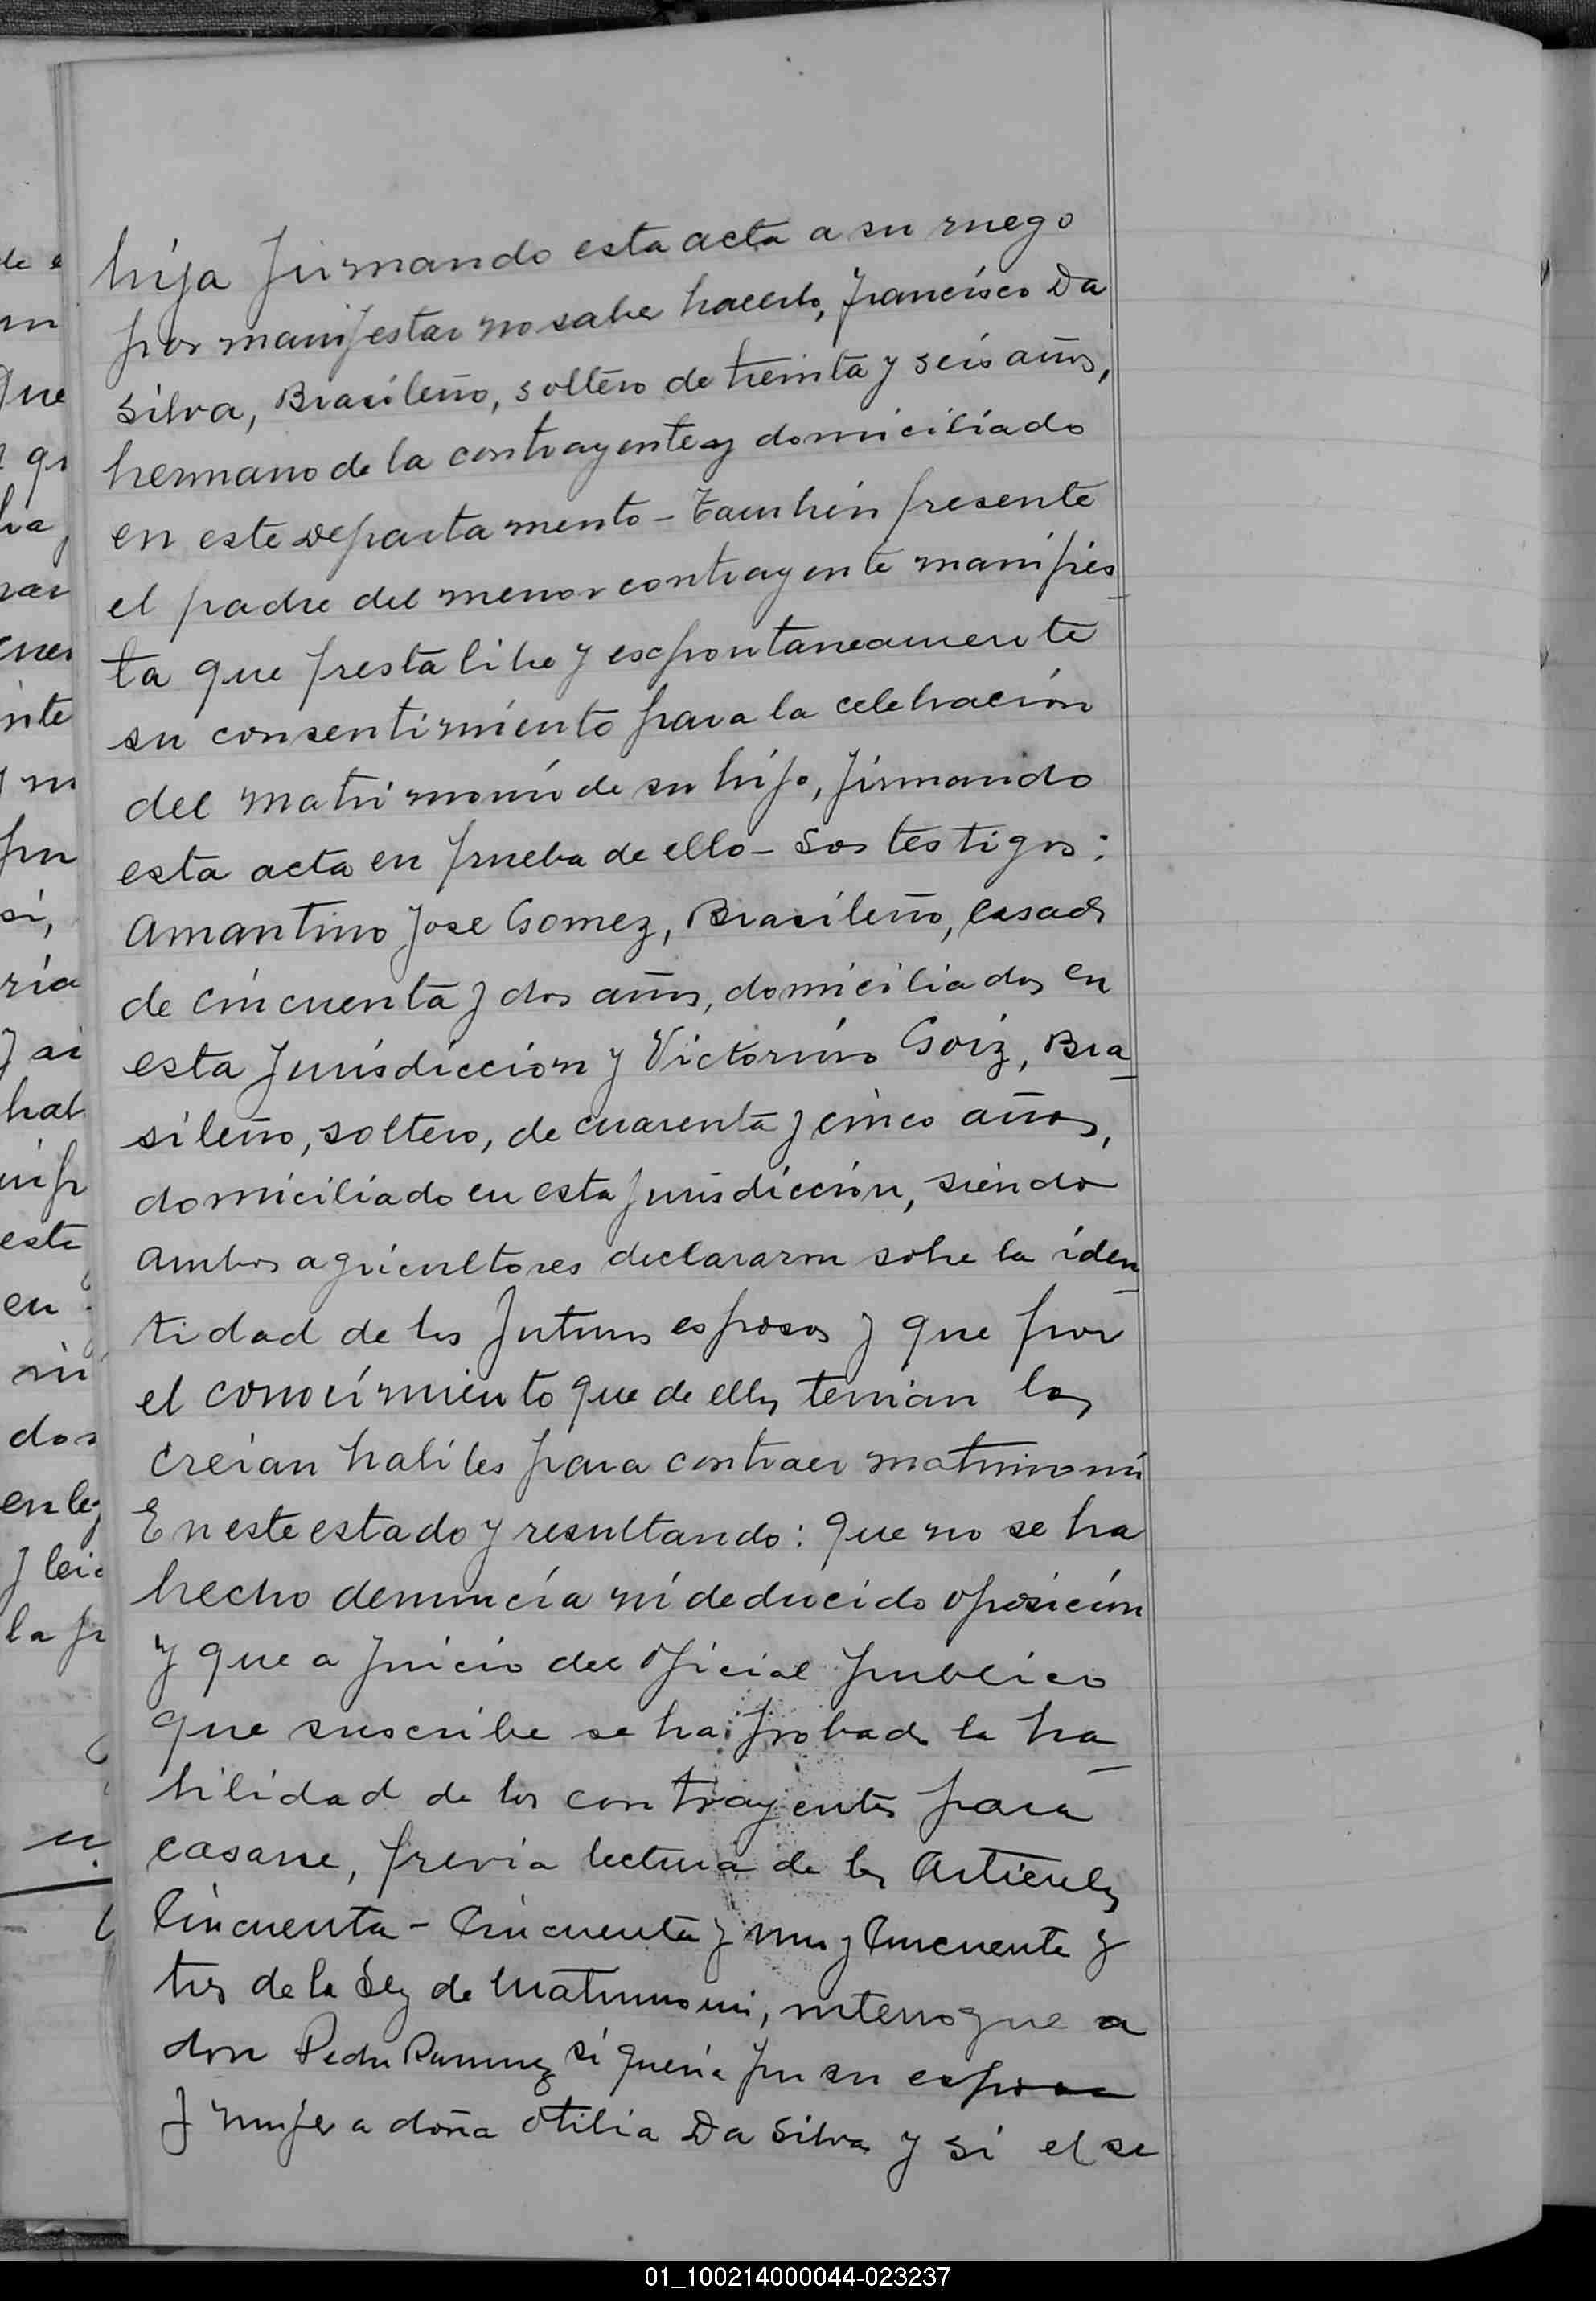 hija firmando esta acta a su ruego
por manifestar no saber hacerlo, Francisco Da
Silva, Brasileño, soltero de treinta y seis años,
hermano de la contrayente y domiciliado
en este Departamento - También presente
el padre del menor contrayente manifies
ta que presta libre y espontaneamente
su consentimiento para la celebración
del matrimonio de su hijo, firmando
esta acta en prueba de ello - Los testigos:
Amantino Jose Gomez, Brasileño, casado
de cincuenta y dos años, domiciliados en
esta Jurisdicción y Victorino Goiz, Bra
sileño, soltero, de cuarenta y cinco años,
domiciliado en esta jurisdicción, siendo
ambos agricultores declararon sobre la iden
tidad de los futuros esposos y que por
el conocimiento que de ellos tenian los
creian habiles para contraer matrimonio
En este estado y resultando: que no se ha
hecho denuncia ni deducido oposición
y que a juicio del oficial publico
que suscribe se ha probado la ha
bilidad de los contrayentes para
casarse, previa lectura de los Articulos
Cincuenta - Cincuenta y uno y Cincuenta y
tres de la Ley de Matrimonio, interrogue a
don Pedro Ramirez si queria por su esposa
y mujer a doña Otilia Da Silva y si el se
de e
m
que
ha
nte
y m
si,
ria
hab
este
en
dos
la
01_100214000044-023237